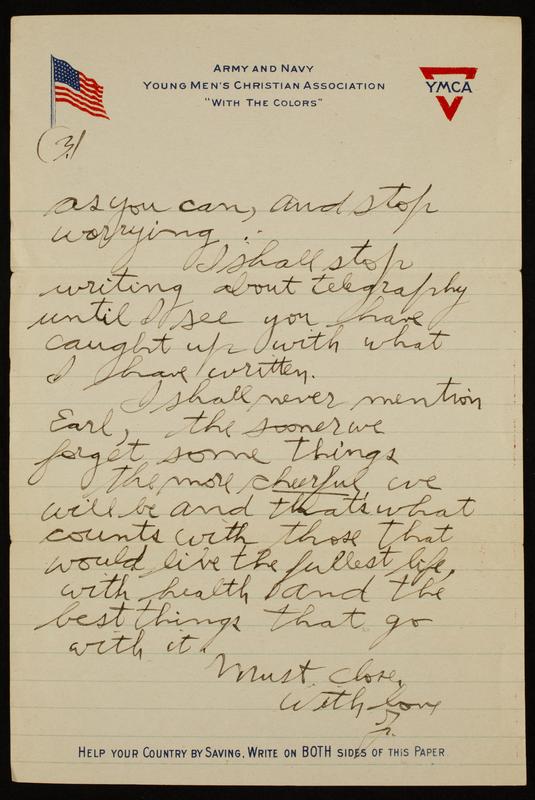 ARMY AND NAVY
YOUNG MEN'S CHRISTIAN ASSOCIATION
"WITH THE COLORS"
YMCA
(3)
as you can, and stop
worrying.
I shall stop
writing about telegraphy
until I see you have
caught up with what
I have written.
I shall never mention
Earl, the sooner we
forget some things
the more cheerful we
will be and that's what
counts with those that
would live the fullest life,
with health and the
best things that go
with it.
Must close,
With love
HELP YOUR COUNTRY BY SAVING. WRITE ON BOTH SIDES OF THIS PAPER